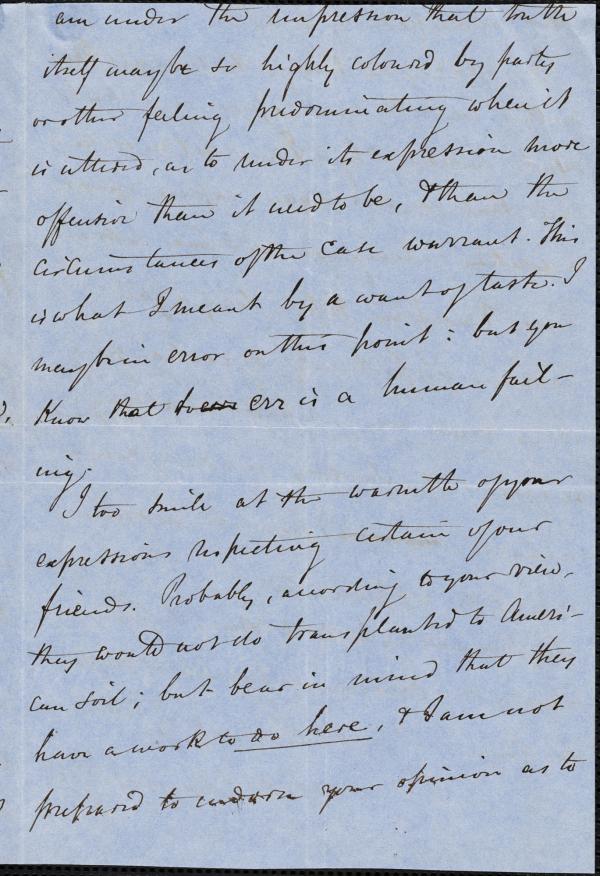 am under the impression that truth
itself may be so highly coloured by party
or other feeling predominating when it
is uttered, as to render its expression more
offensive than it need to be, & than the
circumstances of the case warrant. This
is what I meant by a want of taste. I
may be in error on this point: but you
know that to err is a human fail-
ing.
I too smile at the warmth of your
expressions respecting certain of your
friends. Probably, according to your view,
they would not do transplanted to Ameri-
can soil; but bear in mind that they
have a work to do here, & I am not
prepared to endorse your opinion as to